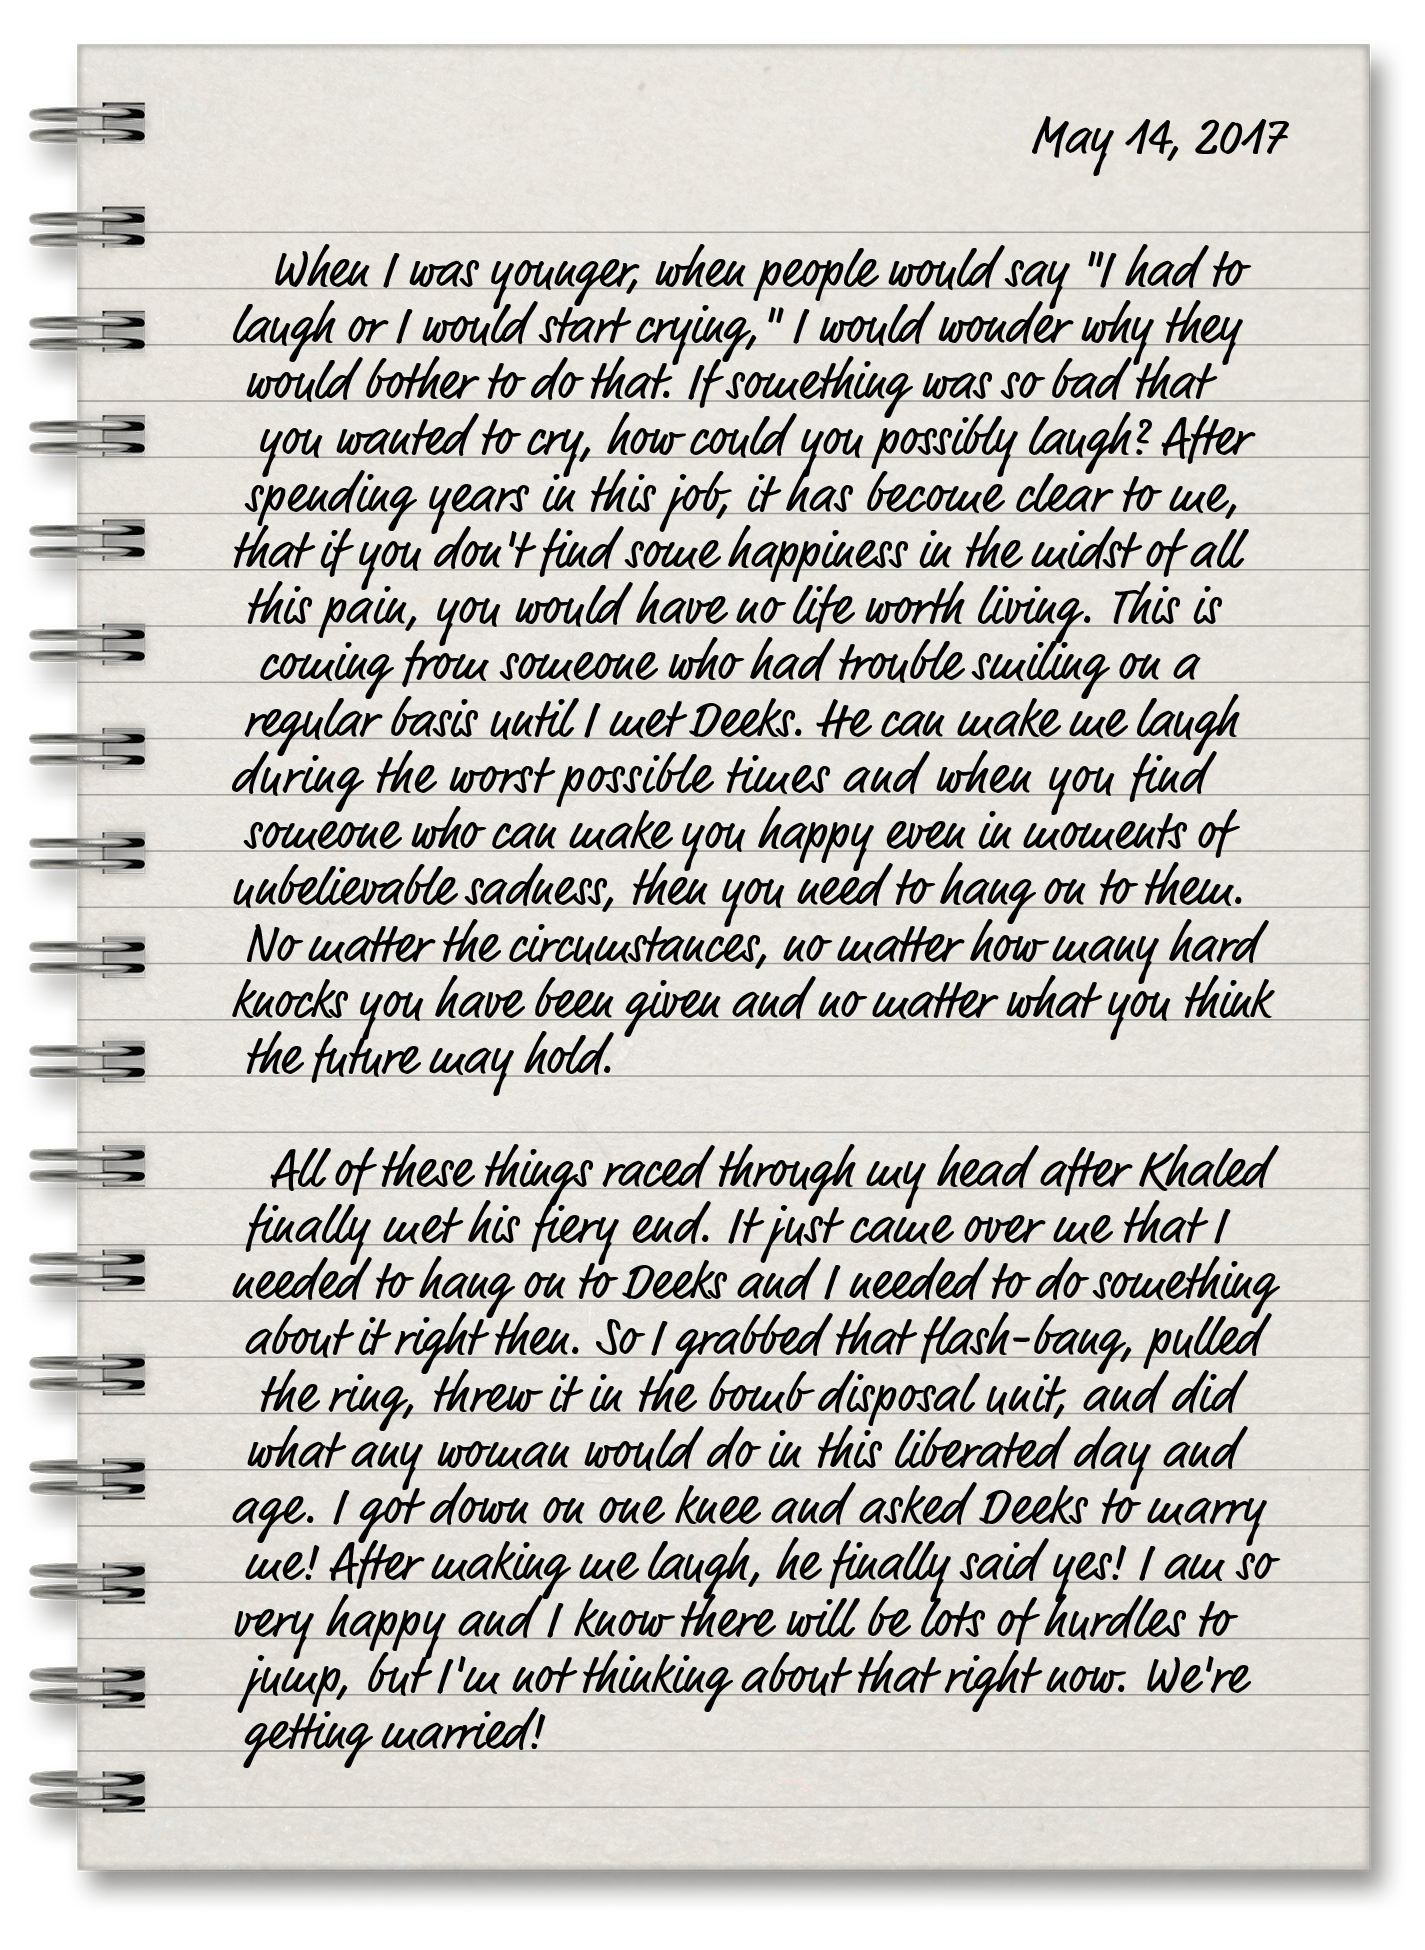 May 14, 2017
When I was younger, when people would say "I had to
laugh or I would start crying," I would wonder why they
would bother to do that. If something was so bad that
you wanted to cry, how could you possibly laugh? After
spending years in this job, it has become clear to me,
that if you don't find some happiness in the midst of all
this pain, you would have no life worth living. This is
coming from someone who had trouble smiling on a
regular basis until I met Deeks. He can make me laugh
during the worst possible times and when you find
someone who can make you happy even in moments of
unbelievable sadness, then you need to hang on to them.
No matter the circumstances, no matter how many hard
knocks you have been given and no matter what you think
the future may hold.
All of these things raced through my head after Khaled
finally met his fiery end. It just came over me that I
needed to hang on to Deeks and I needed to do something
about it right then. So I grabbed that flash-bang, pulled
the ring, threw it in the bomb disposal unit, and did
what any woman would do in this liberated day and
age. I got down on one knee and asked Deeks to marry
me! After making me laugh, he finally said yes! I am so
very happy and I know there will be lots of hurdles to
jump, but I'm not thinking about that right now. We're
getting married!